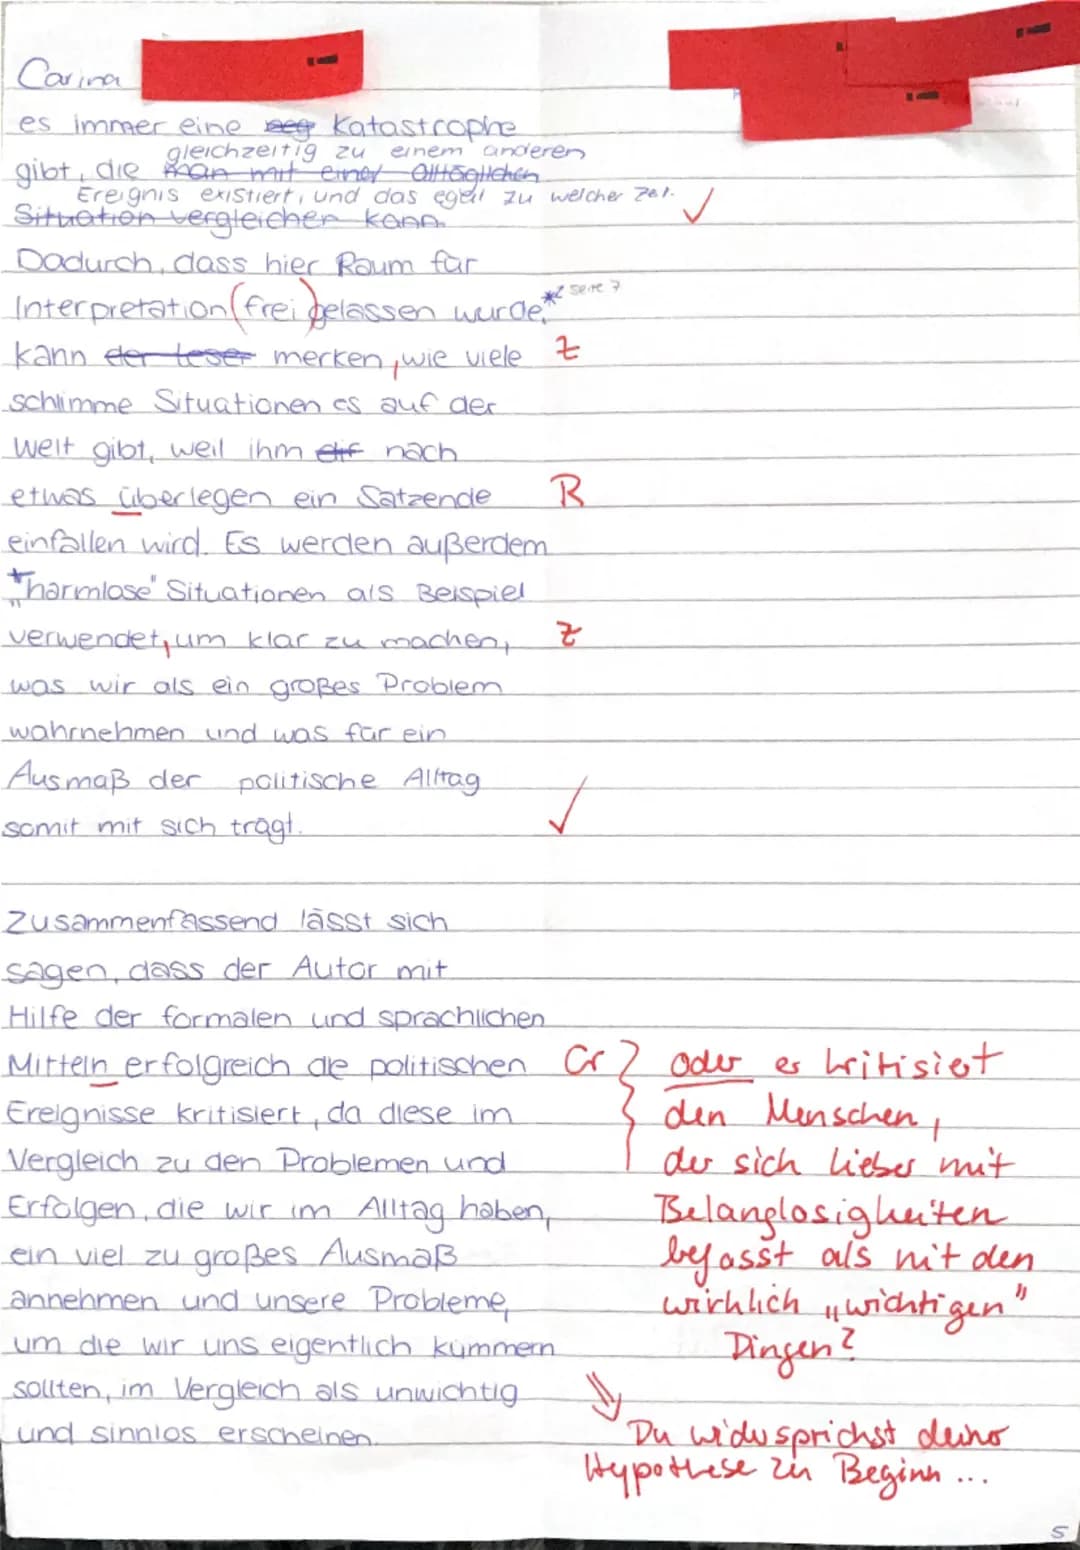 Carina
es immer eine seg Katastrophe
gleichzeitig zu einem anderen
gibt, die man mit einer alltäglichen
Ereignis existiert, und das egal zu welcher Zeit. ✓
Situation vergleichen kann.
Dadurch, dass hier Raum für
Interpretation (frei) belassen wurde,*² Seite 7
kann der Leser merken, wie viele Z
schlimme Situationen es auf der
Welt gibt, weil ihm die nach
etwas überlegen ein Satzende R
einfallen wird. Es werden außerdem
"harmlose" Situationen als Beispiel
verwendet, um klar zu machen, Z
was wir als ein großes Problem
wahrnehmen und was für ein
Ausmaß der politische Alltag
somit mit sich trägt. ✓
Zusammenfassend lässt sich
sagen, dass der Autor mit
Hilfe der formalen und sprachlichen
Mitteln erfolgreich die politischen Gr
Ereignisse kritisiert, da diese im
Vergleich zu den Problemen und
Erfolgen, die wir im Alltag haben,
ein viel zu großes Ausmaß
annehmen und unsere Probleme,
um die wir uns eigentlich kümmern
sollten, im Vergleich als unwichtig
und sinnlos erscheinen.
oder er kritisiert
den Menschen,
der sich lieber mit
Belanglosigkeiten
befasst als mit den
wirklich „wichtigen"
Dingen?
Du widersprichst deiner
Hypothese zu Beginn ...
5